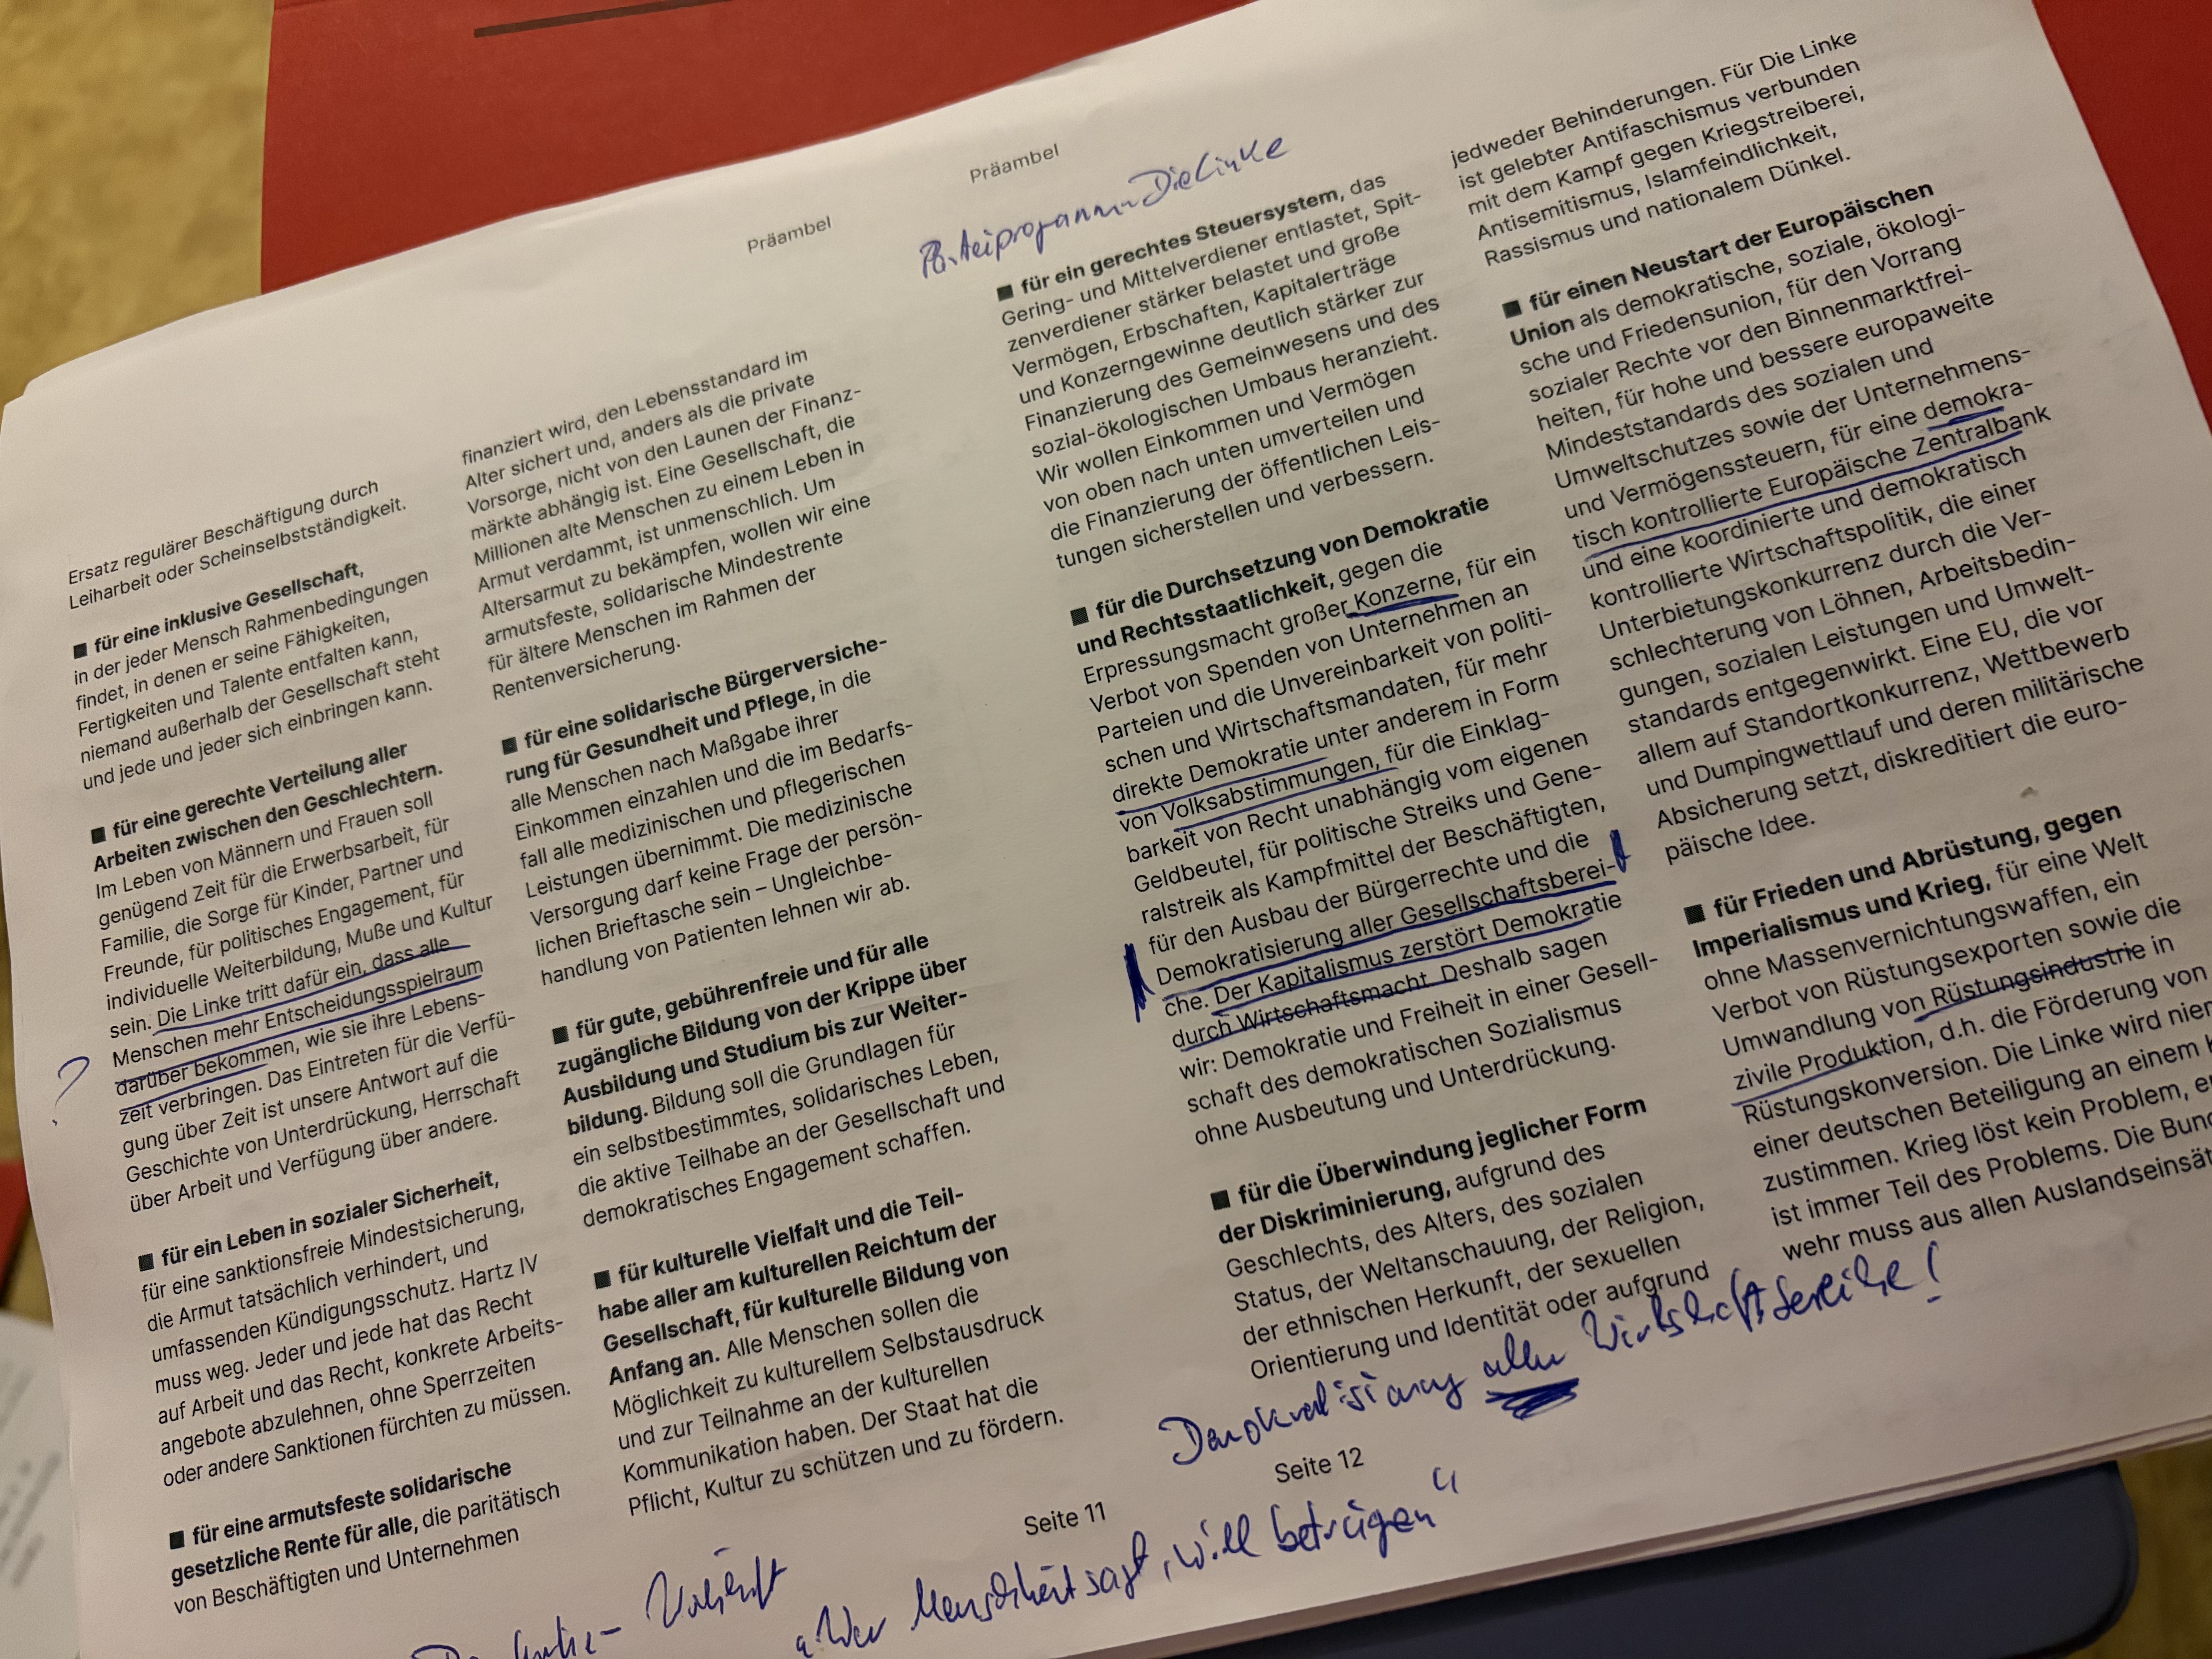 Präambel
Ersatz regulärer Beschäftigung durch
Leiharbeit oder Scheinselbstständigkeit.
■ für eine inklusive Gesellschaft,
in der jeder Mensch Rahmenbedingungen
findet, in denen er seine Fähigkeiten,
Fertigkeiten und Talente entfalten kann,
niemand außerhalb der Gesellschaft steht
und jede und jeder sich einbringen kann.
■ für eine gerechte Verteilung aller
Arbeiten zwischen den Geschlechtern.
Im Leben von Männern und Frauen soll
genügend Zeit für die Erwerbsarbeit, für
Familie, die Sorge für Kinder, Partner und
Freunde, für politisches Engagement, für
individuelle Weiterbildung, Muße und Kultur
sein. Die Linke tritt dafür ein, dass alle
Menschen mehr Entscheidungsspielraum
? darüber bekommen, wie sie ihre Lebens-
zeit verbringen. Das Eintreten für die Verfü-
gung über Zeit ist unsere Antwort auf die
Geschichte von Unterdrückung, Herrschaft
über Arbeit und Verfügung über andere.
■ für ein Leben in sozialer Sicherheit,
für eine sanktionsfreie Mindestsicherung,
die Armut tatsächlich verhindert, und
umfassenden Kündigungsschutz. Hartz IV
muss weg. Jeder und jede hat das Recht
auf Arbeit und das Recht, konkrete Arbeits-
angebote abzulehnen, ohne Sperrzeiten
oder andere Sanktionen fürchten zu müssen.
■ für eine armutsfeste solidarische
gesetzliche Rente für alle, die paritätisch
von Beschäftigten und Unternehmen
finanziert wird, den Lebensstandard im
Alter sichert und, anders als die private
Vorsorge, nicht von den Launen der Finanz-
märkte abhängig ist. Eine Gesellschaft, die
Millionen alte Menschen zu einem Leben in
Armut verdammt, ist unmenschlich. Um
Altersarmut zu bekämpfen, wollen wir eine
armutsfeste, solidarische Mindestrente
für ältere Menschen im Rahmen der
Rentenversicherung.
■ für eine solidarische Bürgerversiche-
rung für Gesundheit und Pflege, in die
alle Menschen nach Maßgabe ihrer
Einkommen einzahlen und die im Bedarfs-
fall alle medizinischen und pflegerischen
Leistungen übernimmt. Die medizinische
Versorgung darf keine Frage der persön-
lichen Brieftasche sein – Ungleichbe-
handlung von Patienten lehnen wir ab.
■ für gute, gebührenfreie und für alle
zugängliche Bildung von der Krippe über
Ausbildung und Studium bis zur Weiter-
bildung. Bildung soll die Grundlagen für
ein selbstbestimmtes, solidarisches Leben,
die aktive Teilhabe an der Gesellschaft und
demokratisches Engagement schaffen.
■ für kulturelle Vielfalt und die Teil-
habe aller am kulturellen Reichtum der
Gesellschaft, für kulturelle Bildung von
Anfang an. Alle Menschen sollen die
Möglichkeit zu kulturellem Selbstausdruck
und zur Teilnahme an der kulturellen
Kommunikation haben. Der Staat hat die
Pflicht, Kultur zu schützen und zu fördern.
Seite 11
Präambel
Parteiprogramm Die Linke
■ für ein gerechtes Steuersystem, das
Gering- und Mittelverdiener entlastet, Spit-
zenverdiener stärker belastet und große
Vermögen, Erbschaften, Kapitalerträge
und Konzerngewinne deutlich stärker zur
Finanzierung des Gemeinwesens und des
sozial-ökologischen Umbaus heranzieht.
Wir wollen Einkommen und Vermögen
von oben nach unten umverteilen und
die Finanzierung der öffentlichen Leis-
tungen sicherstellen und verbessern.
■ für die Durchsetzung von Demokratie
und Rechtsstaatlichkeit, gegen die
Erpressungsmacht großer Konzerne, für ein
Verbot von Spenden von Unternehmen an
Parteien und die Unvereinbarkeit von politi-
schen und Wirtschaftsmandaten, für mehr
direkte Demokratie unter anderem in Form
von Volksabstimmungen, für die Einklag-
barkeit von Recht unabhängig vom eigenen
Geldbeutel, für politische Streiks und Gene-
ralstreik als Kampfmittel der Beschäftigten,
für den Ausbau der Bürgerrechte und die
Demokratisierung aller Gesellschaftsberei-
che. Der Kapitalismus zerstört Demokratie
durch Wirtschaftsmacht. Deshalb sagen
wir: Demokratie und Freiheit in einer Gesell-
schaft des demokratischen Sozialismus
ohne Ausbeutung und Unterdrückung.
■ für die Überwindung jeglicher Form
der Diskriminierung, aufgrund des
Geschlechts, des Alters, des sozialen
Status, der Weltanschauung, der Religion,
der ethnischen Herkunft, der sexuellen
Orientierung und Identität oder aufgrund
jedweder Behinderungen. Für Die Linke
ist gelebter Antifaschismus verbunden
mit dem Kampf gegen Kriegstreiberei,
Antisemitismus, Islamfeindlichkeit,
Rassismus und nationalem Dünkel.
■ für einen Neustart der Europäischen
Union als demokratische, soziale, ökologi-
sche und Friedensunion, für den Vorrang
sozialer Rechte vor den Binnenmarktfrei-
heiten, für hohe und bessere europaweite
Mindeststandards des sozialen und
Umweltschutzes sowie der Unternehmens-
und Vermögenssteuern, für eine demokra-
tisch kontrollierte Europäische Zentralbank
und eine koordinierte und demokratisch
kontrollierte Wirtschaftspolitik, die einer
Unterbietungskonkurrenz durch die Ver-
schlechterung von Löhnen, Arbeitsbedin-
gungen, sozialen Leistungen und Umwelt-
standards entgegenwirkt. Eine EU, die vor
allem auf Standortkonkurrenz, Wettbewerb
und Dumpingwettlauf und deren militärische
Absicherung setzt, diskreditiert die euro-
päische Idee.
■ für Frieden und Abrüstung, gegen
Imperialismus und Krieg, für eine Welt
ohne Massenvernichtungswaffen, ein
Verbot von Rüstungsexporten sowie die
Umwandlung von Rüstungsindustrie in
zivile Produktion, d.h. die Förderung von
Rüstungskonversion. Die Linke wird
einer deutschen Beteiligung an einem
zustimmen. Krieg löst kein Problem,
ist immer Teil des Problems. Die
wehr muss aus allen
Demokratisierung aller Wirtschaftsbereiche!
Seite 12
„Wer Menschheit sagt, will betrügen“